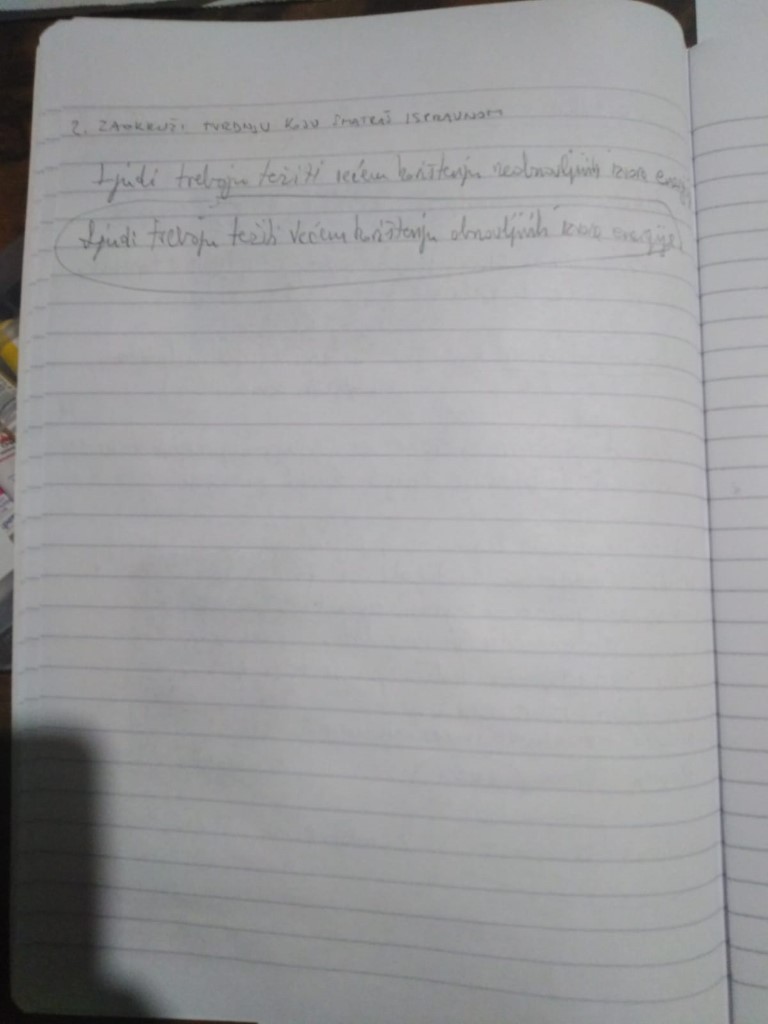 2. ZAOKRUŽI TVRDNJU KOJU SMATRAŠ ISPRAVNOM
Ljudi trebaju težiti većem korištenju neobnovljivih izvora energije
Ljudi trebaju težiti većem korištenju obnovljivih izvora energije.